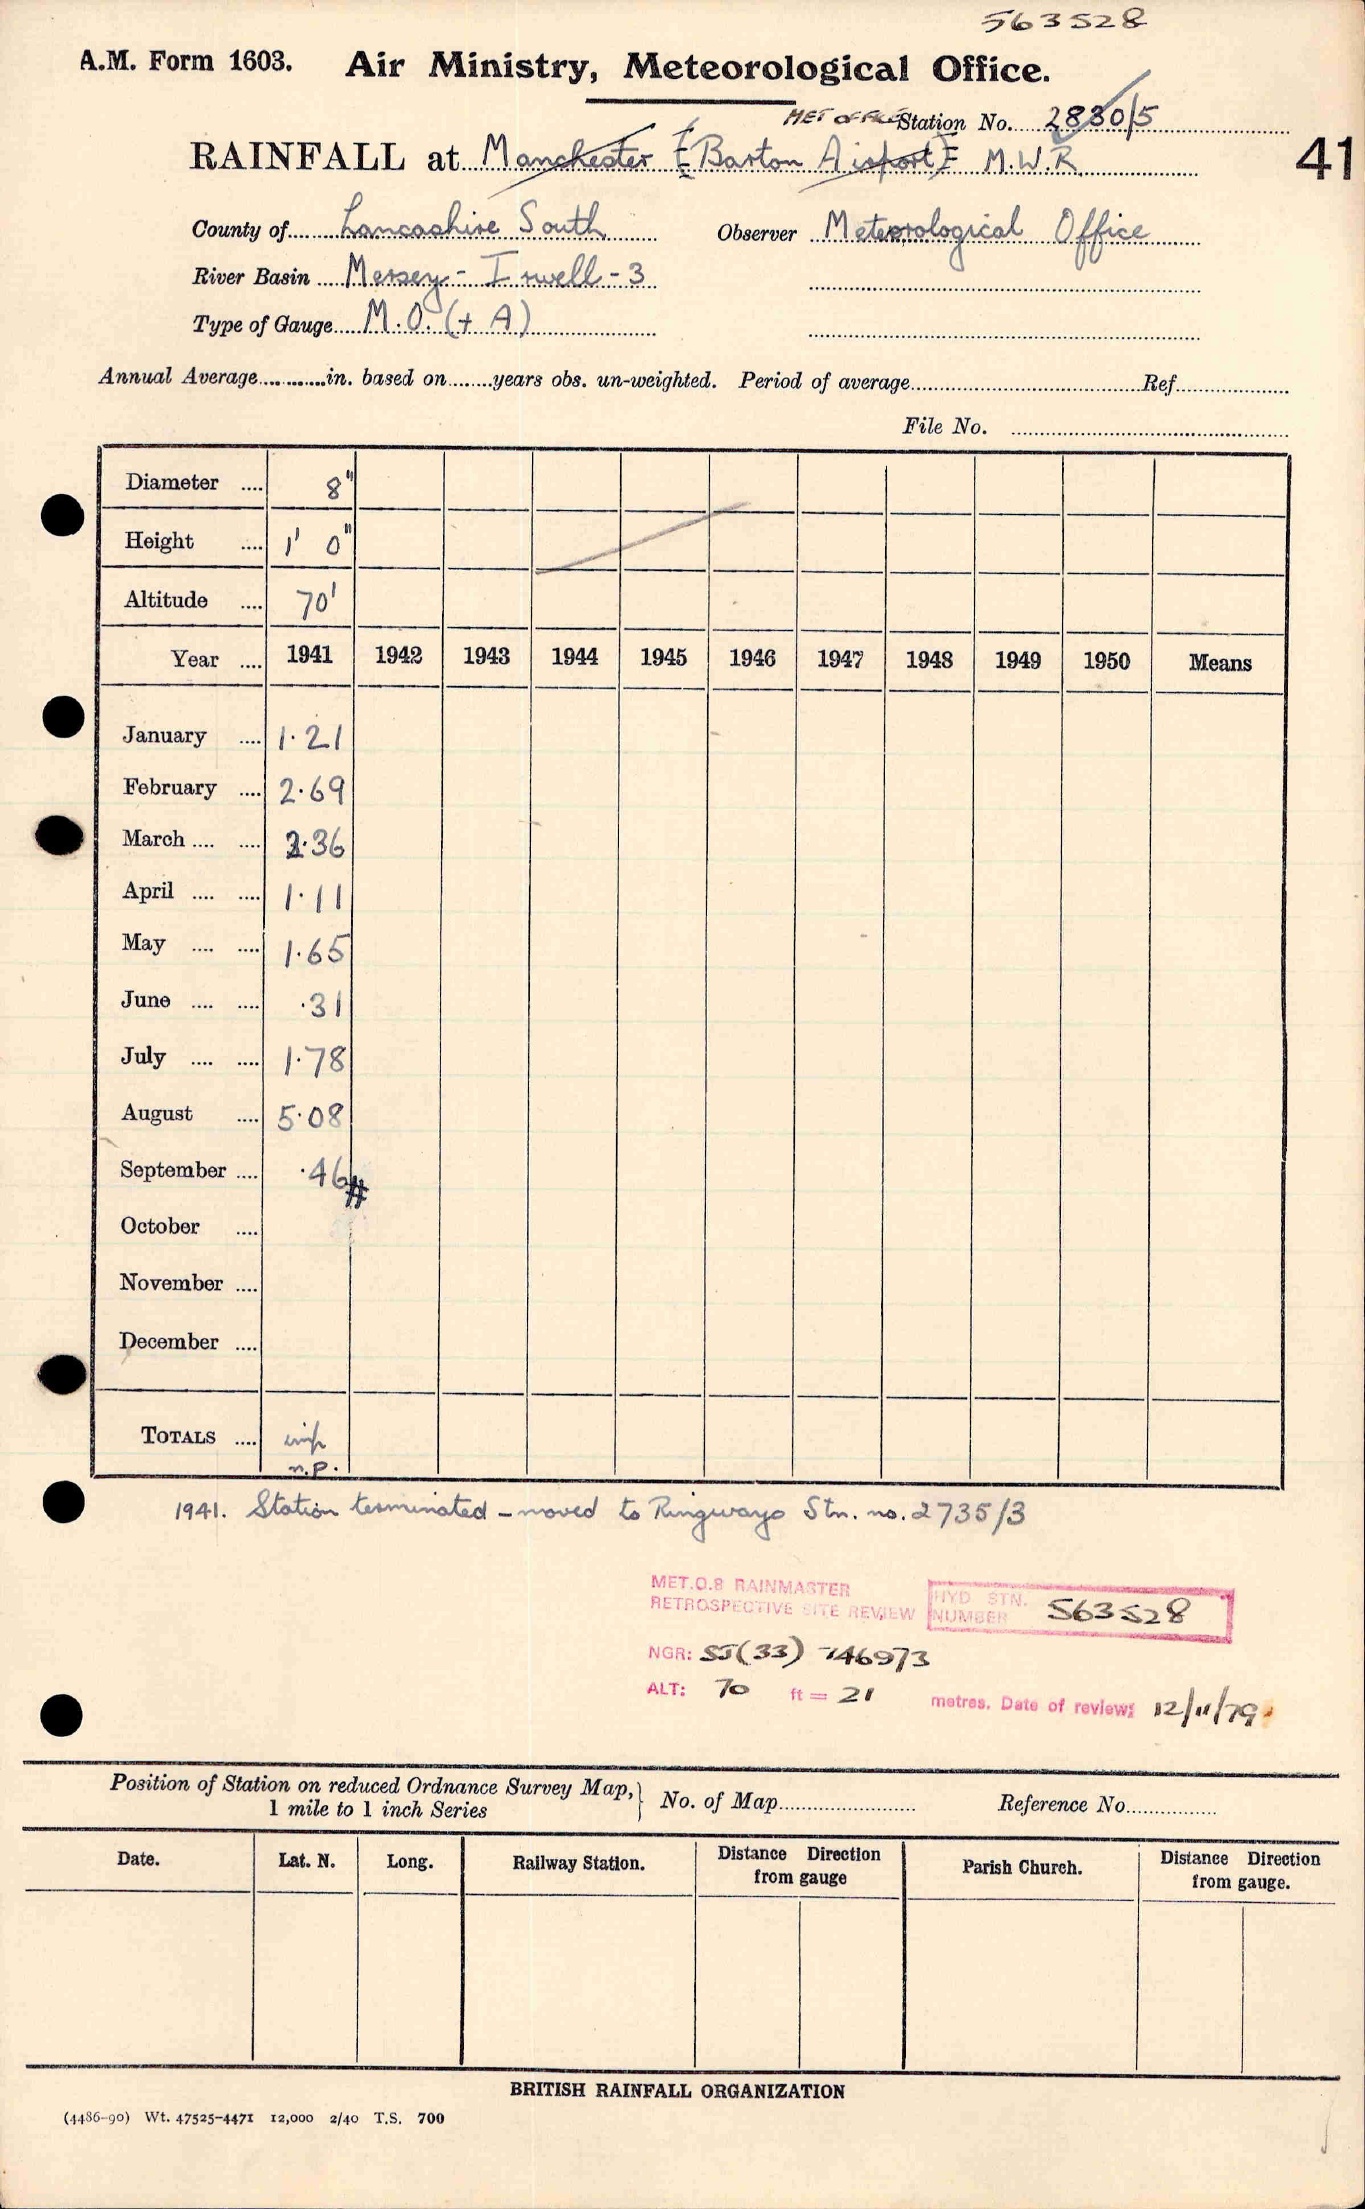 563528
A.M. Form 1603. Air Ministry, Meteorological Office.
MET OFFICE Station No. 2830/5
RAINFALL at Manchester (Barton Airport) M.W.R. 41
County of Lancashire South Observer Meteorological Office
River Basin Mersey - Irwell - 3
Type of Gauge M.O. (+ A)
Annual Average............in. based on........years obs. un-weighted. Period of average........................Ref................
File No. ................
Diameter .... 8"
Height .... 1' 0"
Altitude .... 70'
Year .... 1941 1942 1943 1944 1945 1946 1947 1948 1949 1950 Means
January .... 1.21
February .... 2.69
March .... .... 2.36
April .... .... 1.11
May .... .... 1.65
June .... .... .31
July .... .... 1.78
August .... 5.08
September .... .46#
October ....
November ....
December ....
TOTALS .... imp
n.p.
1941. Station terminated - moved to Ringway Stn. no. 2735/3
MET.O.8 RAINMASTER
RETROSPECTIVE SITE REVIEW
HYD STN. NUMBER 563528
NGR: SJ(33) 746973
ALT: 70 ft = 21 metres. Date of review: 12/11/79
Position of Station on reduced Ordnance Survey Map, 1 mile to 1 inch Series } No. of Map........................ Reference No................
Date. Lat. N. Long. Railway Station. Distance Direction from gauge Parish Church. Distance Direction from gauge.
BRITISH RAINFALL ORGANIZATION
(4486-90) Wt. 47525-4471 12,000 2/40 T.S. 700